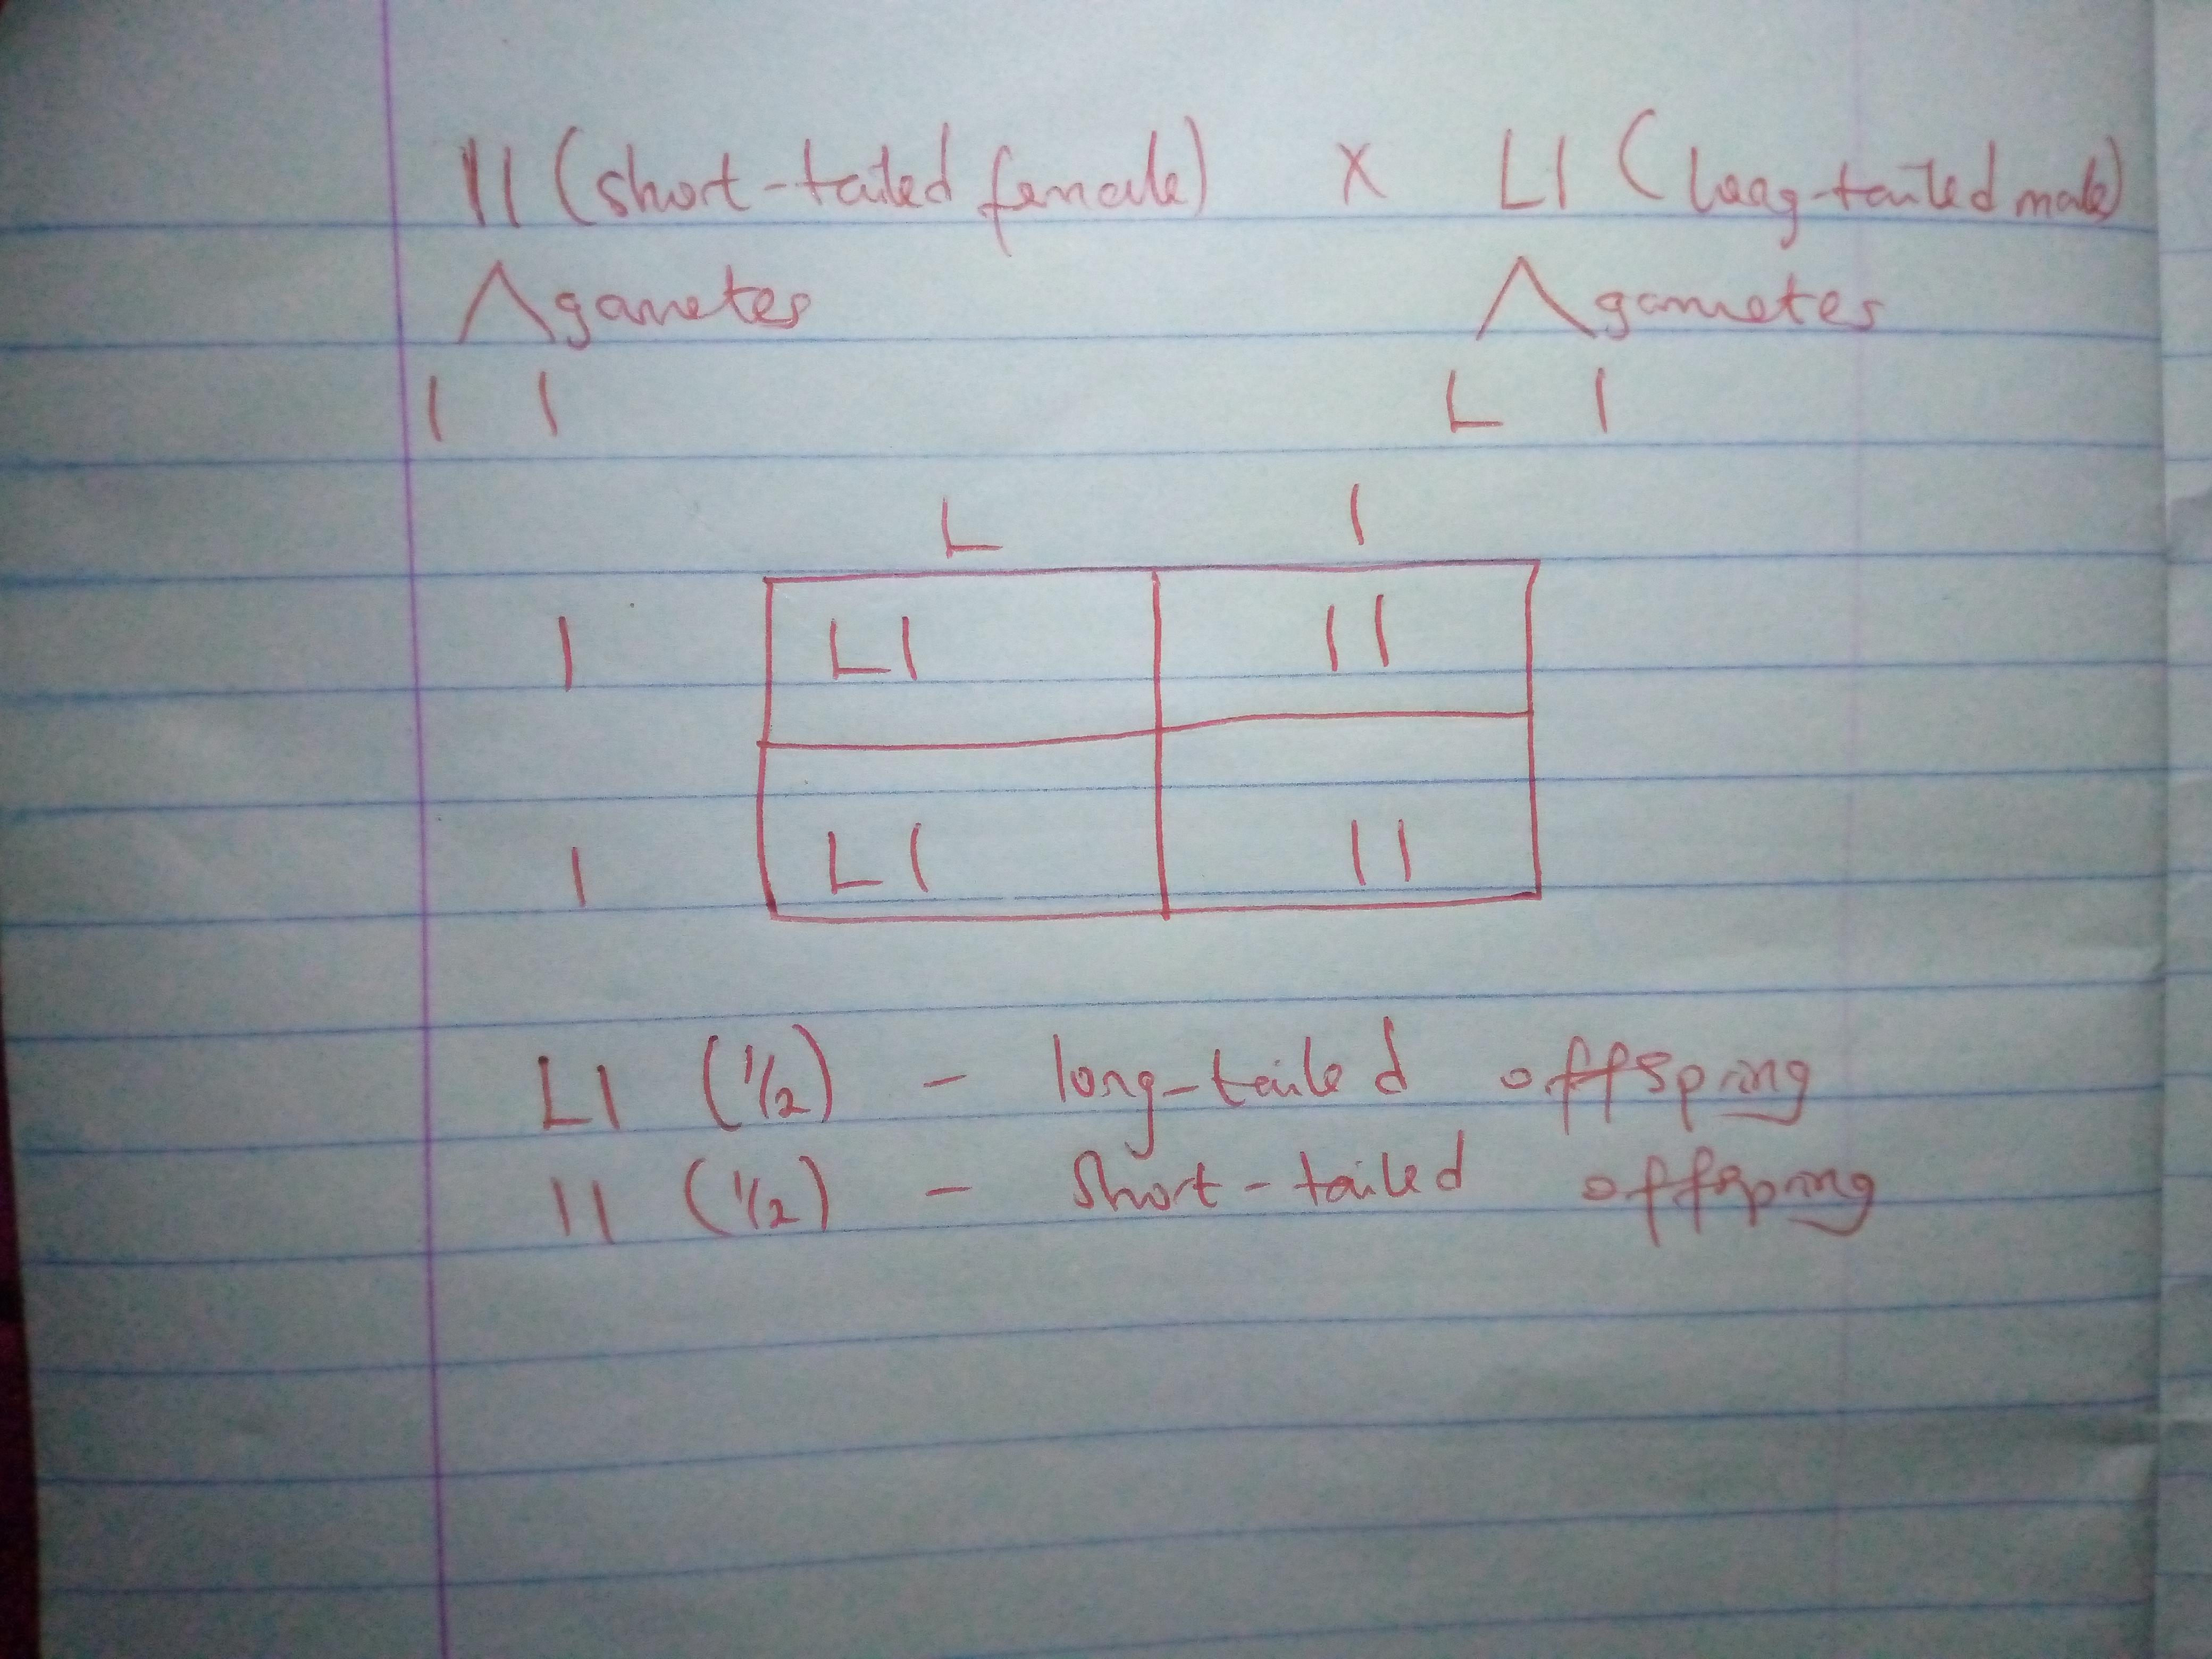 ll (short-tailed female) X Ll (long-tailed male)
gametes gametes
l l L l
L l
l Ll ll
l Ll ll
Ll (1/2) - long-tailed offspring
ll (1/2) - Short-tailed offspring